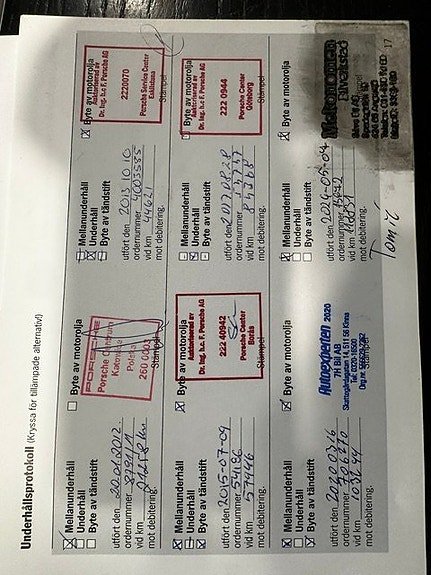 Underhållsprotokoll (Kryssa för tillämpade alternativ!)
Mellanunderhåll
Underhåll
Byte av tändstift
Byte av motorolja
utfört den 20.04.2012.
ordernummer
vid km
mot debitering.
PORSCHE
Porsche Centrum
260 0003
Mellanunderhåll
Underhåll
Byte av tändstift
Byte av motorolja
utfört den 2013 10 10
ordernummer 4003585
vid km 44621
mot debitering.
Auktoriserad av
Dr. Ing. h.c F. Porsche AG
2220070
Porsche Service Center
Eskilstuna
Stämpel
Mellanunderhåll
Underhåll
Byte av tändstift
Byte av motorolja
utfört den 2015-07-09
ordernummer 54186
vid km 57446
mot debitering.
Auktoriserad av
Dr. Ing. h.c F. Porsche AG
222 40942
Porsche Service Center
Borås
Stämpel
Mellanunderhåll
Underhåll
Byte av tändstift
Byte av motorolja
utfört den 2017.08.28
ordernummer
vid km
mot debitering.
Auktoriserad av
Dr. Ing. h.c F. Porsche AG
222 0944
Porsche Service Center
Göteborg
Stämpel
Mellanunderhåll
Underhåll
Byte av tändstift
Byte av motorolja
utfört den 20200316
ordernummer 706210
vid km 103244
mot debitering.
Autoexperten 2020
7H Bil AB
511 56 Kinna
Tel: 0320-16500
Stämpel
Mellanunderhåll
Underhåll
Byte av tändstift
Byte av motorolja
utfört den 2024-05-04
ordernummer
vid km
mot debitering.
Mekonomen
17
Tomić